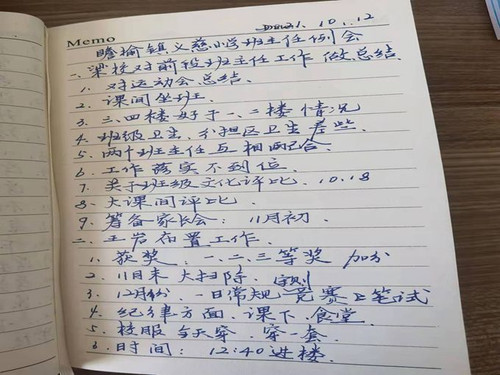 2021.10.12
Memo
瞻榆镇义慈小学班主任例会
一、梁校对前段班主任工作做总结
1. 对运动会总结.
2. 课间坐班.
3. 三、四楼好于一、二楼情况
4. 班级卫生、分担区卫生差些.
5. 两个班主任互相配合.
6. 工作落实不到位.
7. 关于班级文化评比. 10.18
8. 大课间评比.
9. 筹备家长会: 11月初.
二、王岩布置工作.
1. 获奖. 一、二、三等奖 加分
2. 11月末 大扫除.
3. 12月份. 一日常规竞赛 笔试
4. 纪律方面. 课下、食堂.
5. 校服 全天穿. 穿一套.
6. 时间: 12:40 进楼.